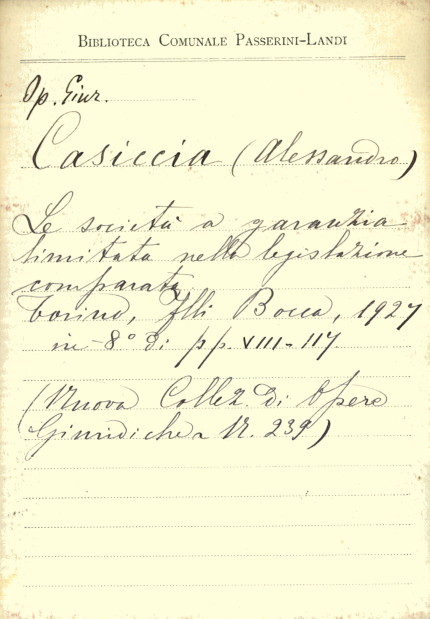 BIBLIOTECA COMUNALE PASSERINI-LANDI
Op. Giur.
Casiccia (Alessandro)
Le società a garanzia
limitata nella legislazione
comparata
Torino, Flli Bocca, 1927
in-8° di pp. VIII-117.
(Nuova Collez. di Opere
Giuridiche N. 239)